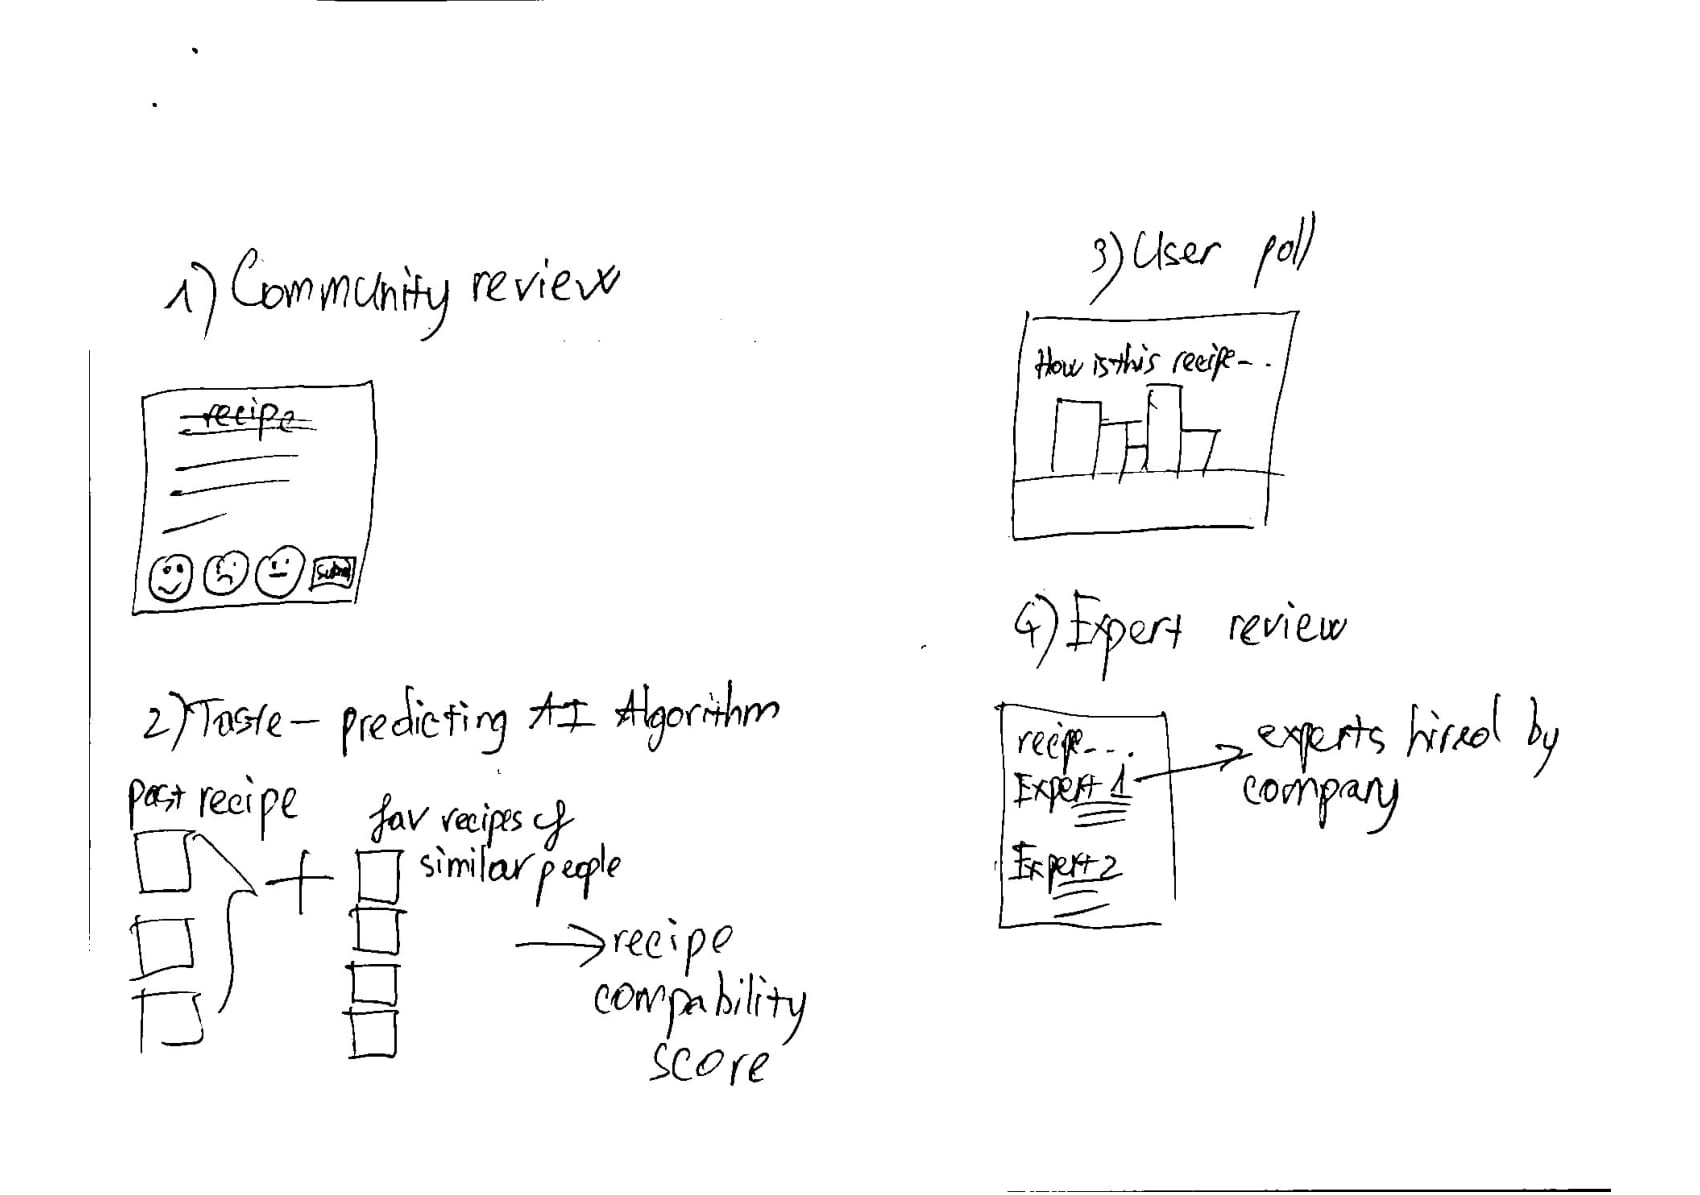 1) Community review
recipe
Submit
2) Taste - predicting AI Algorithm
past recipe
fav recipes of
similar people
recipe
compability
score
3) User poll
How is this recipe...
4) Expert review
recipe...
Expert 1
Expert 2
experts hired by
company